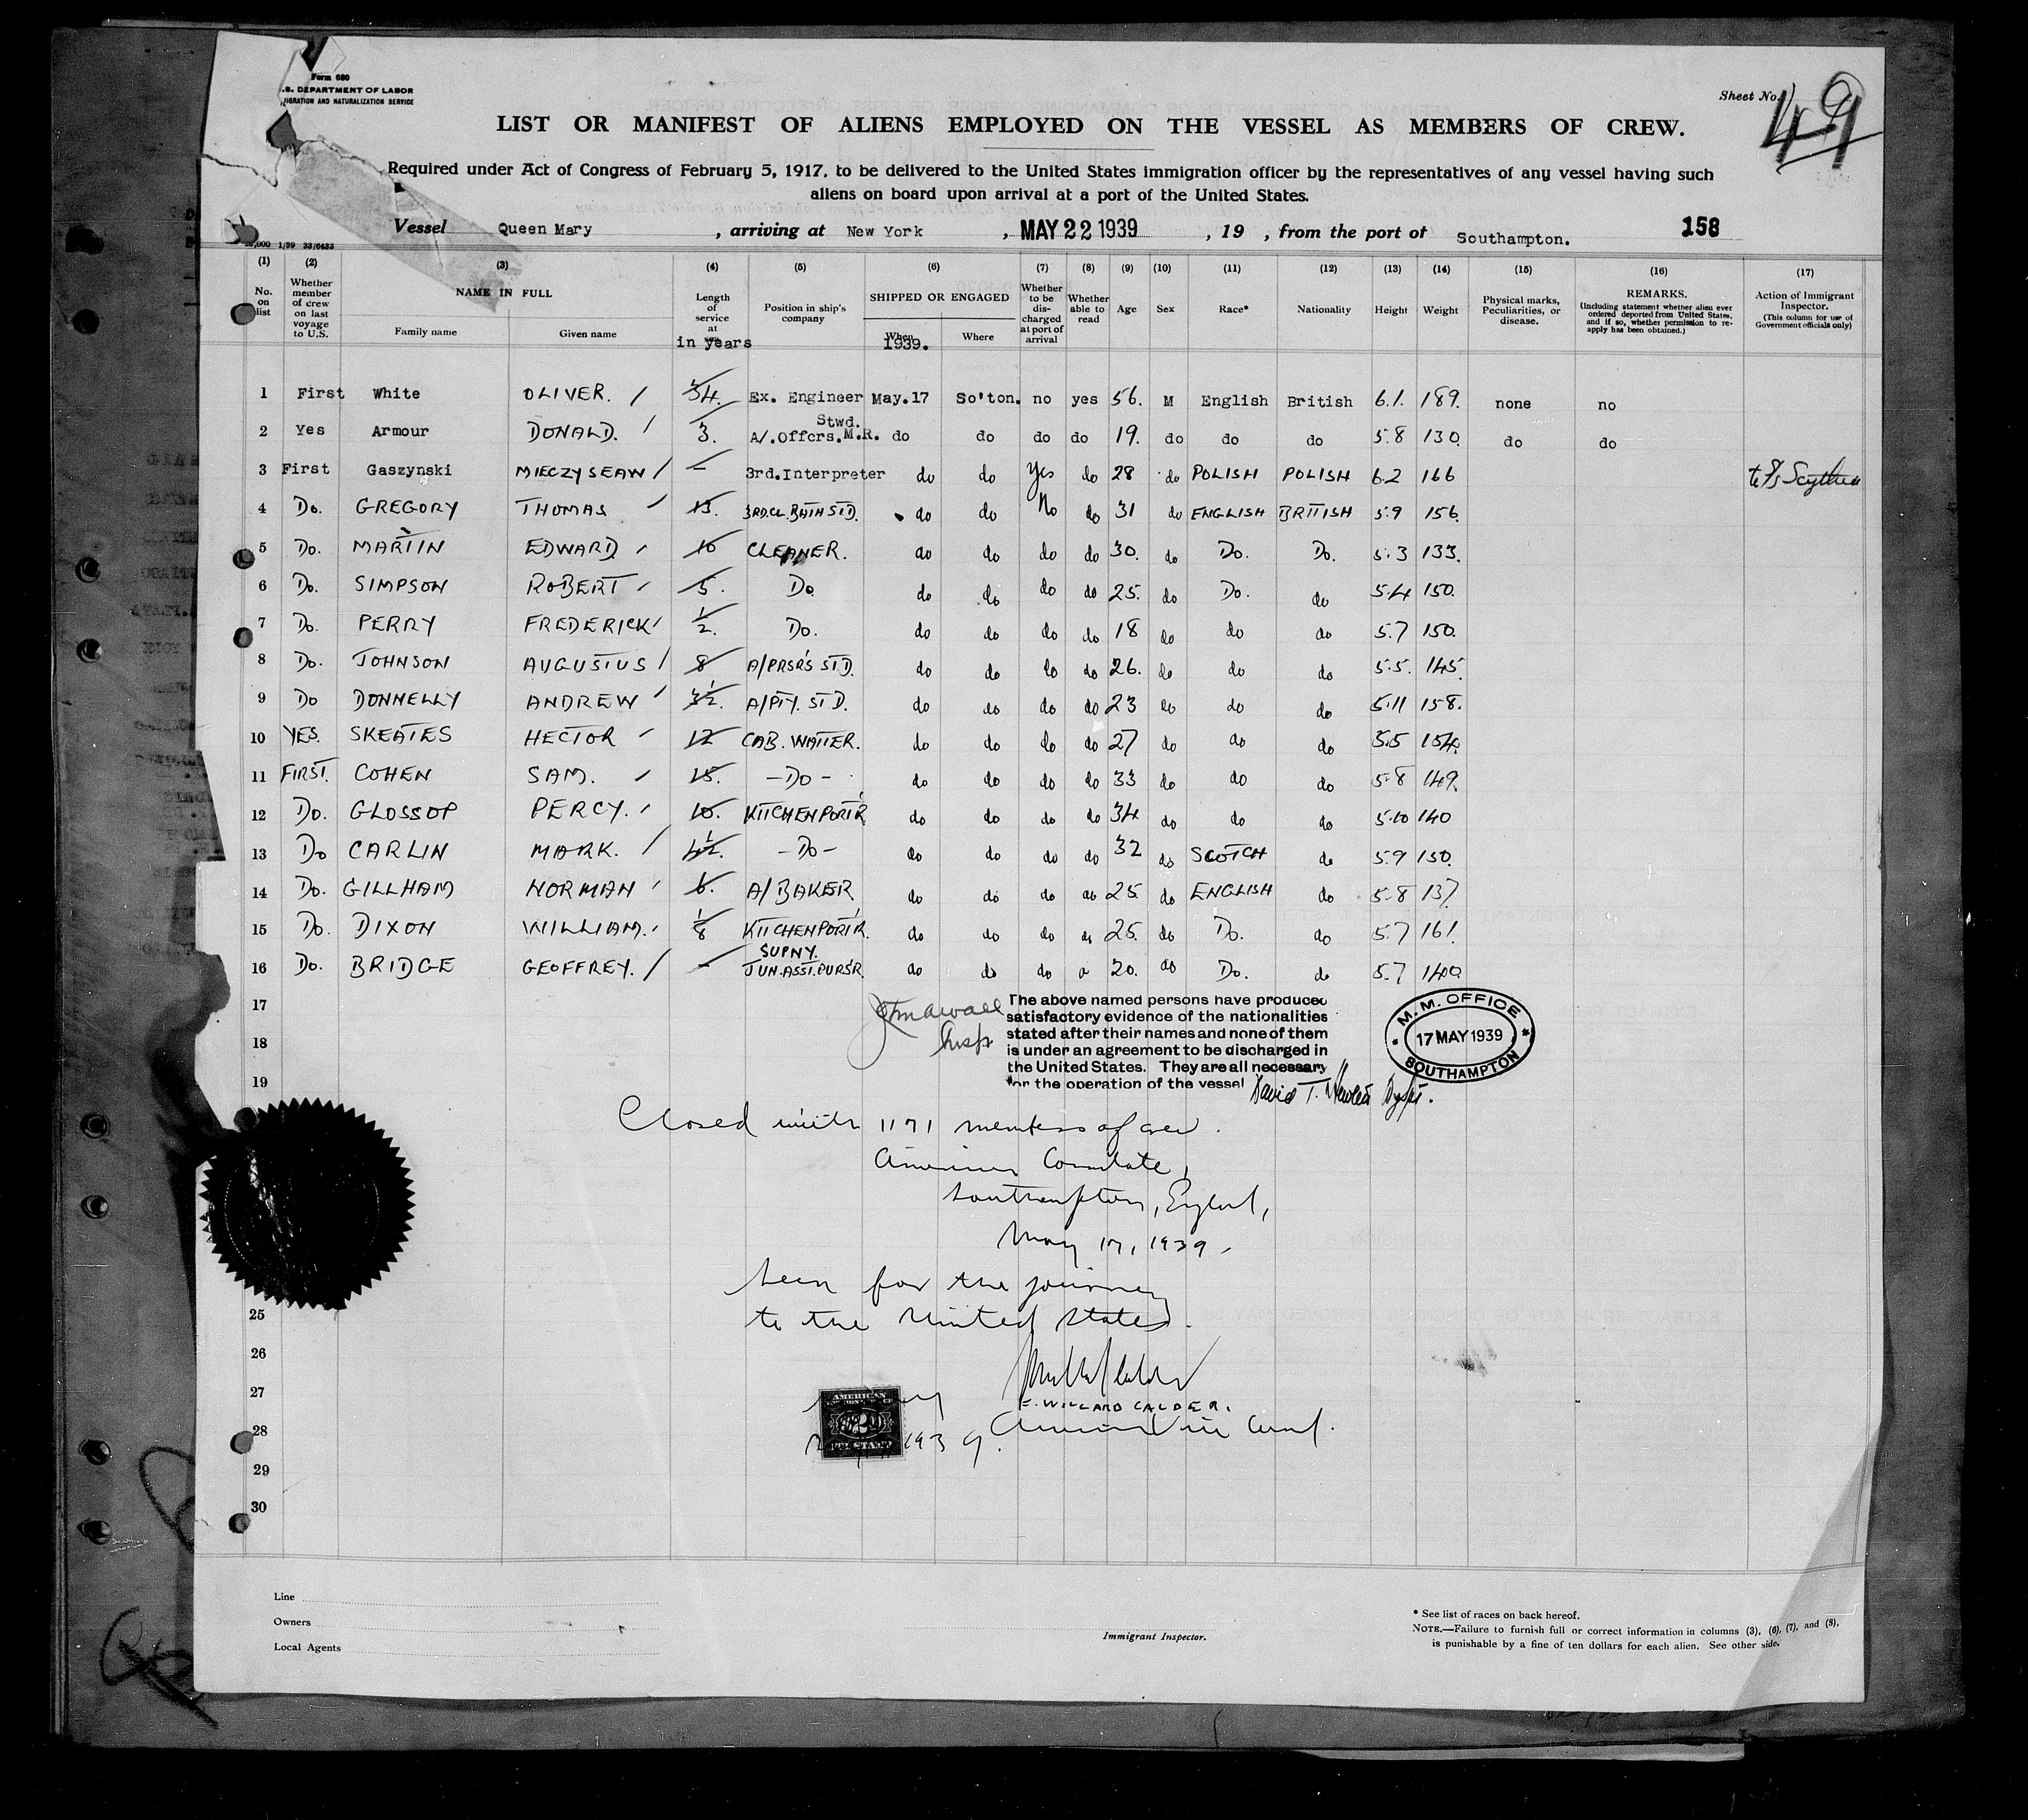 Form 680
.S. DEPARTMENT OF LABOR
IGRATION AND NATURALIZATION SERVICE
Sheet No. 49
LIST OR MANIFEST OF ALIENS EMPLOYED ON THE VESSEL AS MEMBERS OF CREW.
Required under Act of Congress of February 5, 1917, to be delivered to the United States immigration officer by the representatives of any vessel having such
aliens on board upon arrival at a port of the United States.
Vessel Queen Mary , arriving at New York , MAY 22 1939 , 19 , from the port of Southampton. 158
,000 1/39 33/6433
(1) (2) (3) (4) (5) (6) (7) (8) (9) (10) (11) (12) (13) (14) (15) (16) (17)
No. on list
Whether member of crew on last voyage to U.S.
NAME IN FULL
Family name Given name
Length of service at
in years
Position in ship's company
SHIPPED OR ENGAGED
When Where
1939.
Whether to be discharged at port of arrival
Whether able to read
Age Sex Race* Nationality Height Weight
Physical marks, Peculiarities, or disease.
REMARKS.
(Including statement whether alien ever ordered deported from United States, and if so, whether permission to re-apply has been obtained.)
Action of Immigrant Inspector.
(This column for use of Government officials only)
1 First White OLIVER. / 34. Ex. Engineer May.17 So'ton. no yes 56. M English British 6.1. 189. none no
Stwd.
2 Yes Armour DONALD. / 3. A/.Offcrs.M.R. do do do do 19. do do do 5.8 130. do do
3 First Gaszynski MIECZYSEAW / – 3rd.Interpreter do do Yes do 28 do POLISH POLISH 6.2 166 to S/S Scythia
4 Do. GREGORY THOMAS / 13. 3RD.CL.BATH STD. do do No do 31 do ENGLISH BRITISH 5.9 156.
5 Do. MARTIN EDWARD / 10 CLEANER. do do do do 30. do Do. Do. 5.3 133.
6 Do. SIMPSON ROBERT / 5. Do do do do do 25. do Do. do 5.4 150.
7 Do. PERRY FREDERICK / 1/2. Do. do do do do 18 do do do 5.7 150.
8 Do. JOHNSON AUGUSTUS / 8 A/PRSR'S STD. do do do do 26. do do do 5.5. 145.
9 Do DONNELLY ANDREW / 3 1/2. A/PTY. STD. do do do do 23 do do do 5.11 158.
10 YES. SKEATES HECTOR / 12 CAB. WAITER. do do do do 27 do do do 5.5 154.
11 FIRST. COHEN SAM. / 15. –DO– do do do do 33 do do do 5.8 149.
12 Do. GLOSSOP PERCY. / 10. KITCHEN PORT'R do do do do 34 do do do 5.10 140
13 Do CARLIN MARK. / 4 1/2. –DO– do do do do 32 do SCOTCH do 5.9 150.
14 Do. GILLHAM NORMAN / 6. A/BAKER do do do do 25. do ENGLISH do 5.8 137
15 Do. DIXON WILLIAM. / 1/8 KITCHEN PORT'R. do do do do 25. do Do. do 5.7 161.
SUPNY.
16 Do. BRIDGE GEOFFREY. / – JUN.ASST.PURS'R. do do do do 20. do Do. do 5.7 140.
17
18
19
The above named persons have produced
satisfactory evidence of the nationalities
stated after their names and none of them
is under an agreement to be discharged in
the United States. They are all necessary
for the operation of the vessel
M.M. OFFICE
17 MAY 1939
SOUTHAMPTON
Closed with 1171 members of crew.
American Consulate,
Southampton, England,
May 17, 1939.
Seen for the journey
to the United States.
25
26
27
28
29
30
E. WILLARD CALDER.
American Vice Consul.
AMERICAN
FEE STAMP
1939.
Line
Owners
Local Agents
Immigrant Inspector.
* See list of races on back hereof.
NOTE.—Failure to furnish full or correct information in columns (3), (6), (7), and (8),
is punishable by a fine of ten dollars for each alien. See other side.